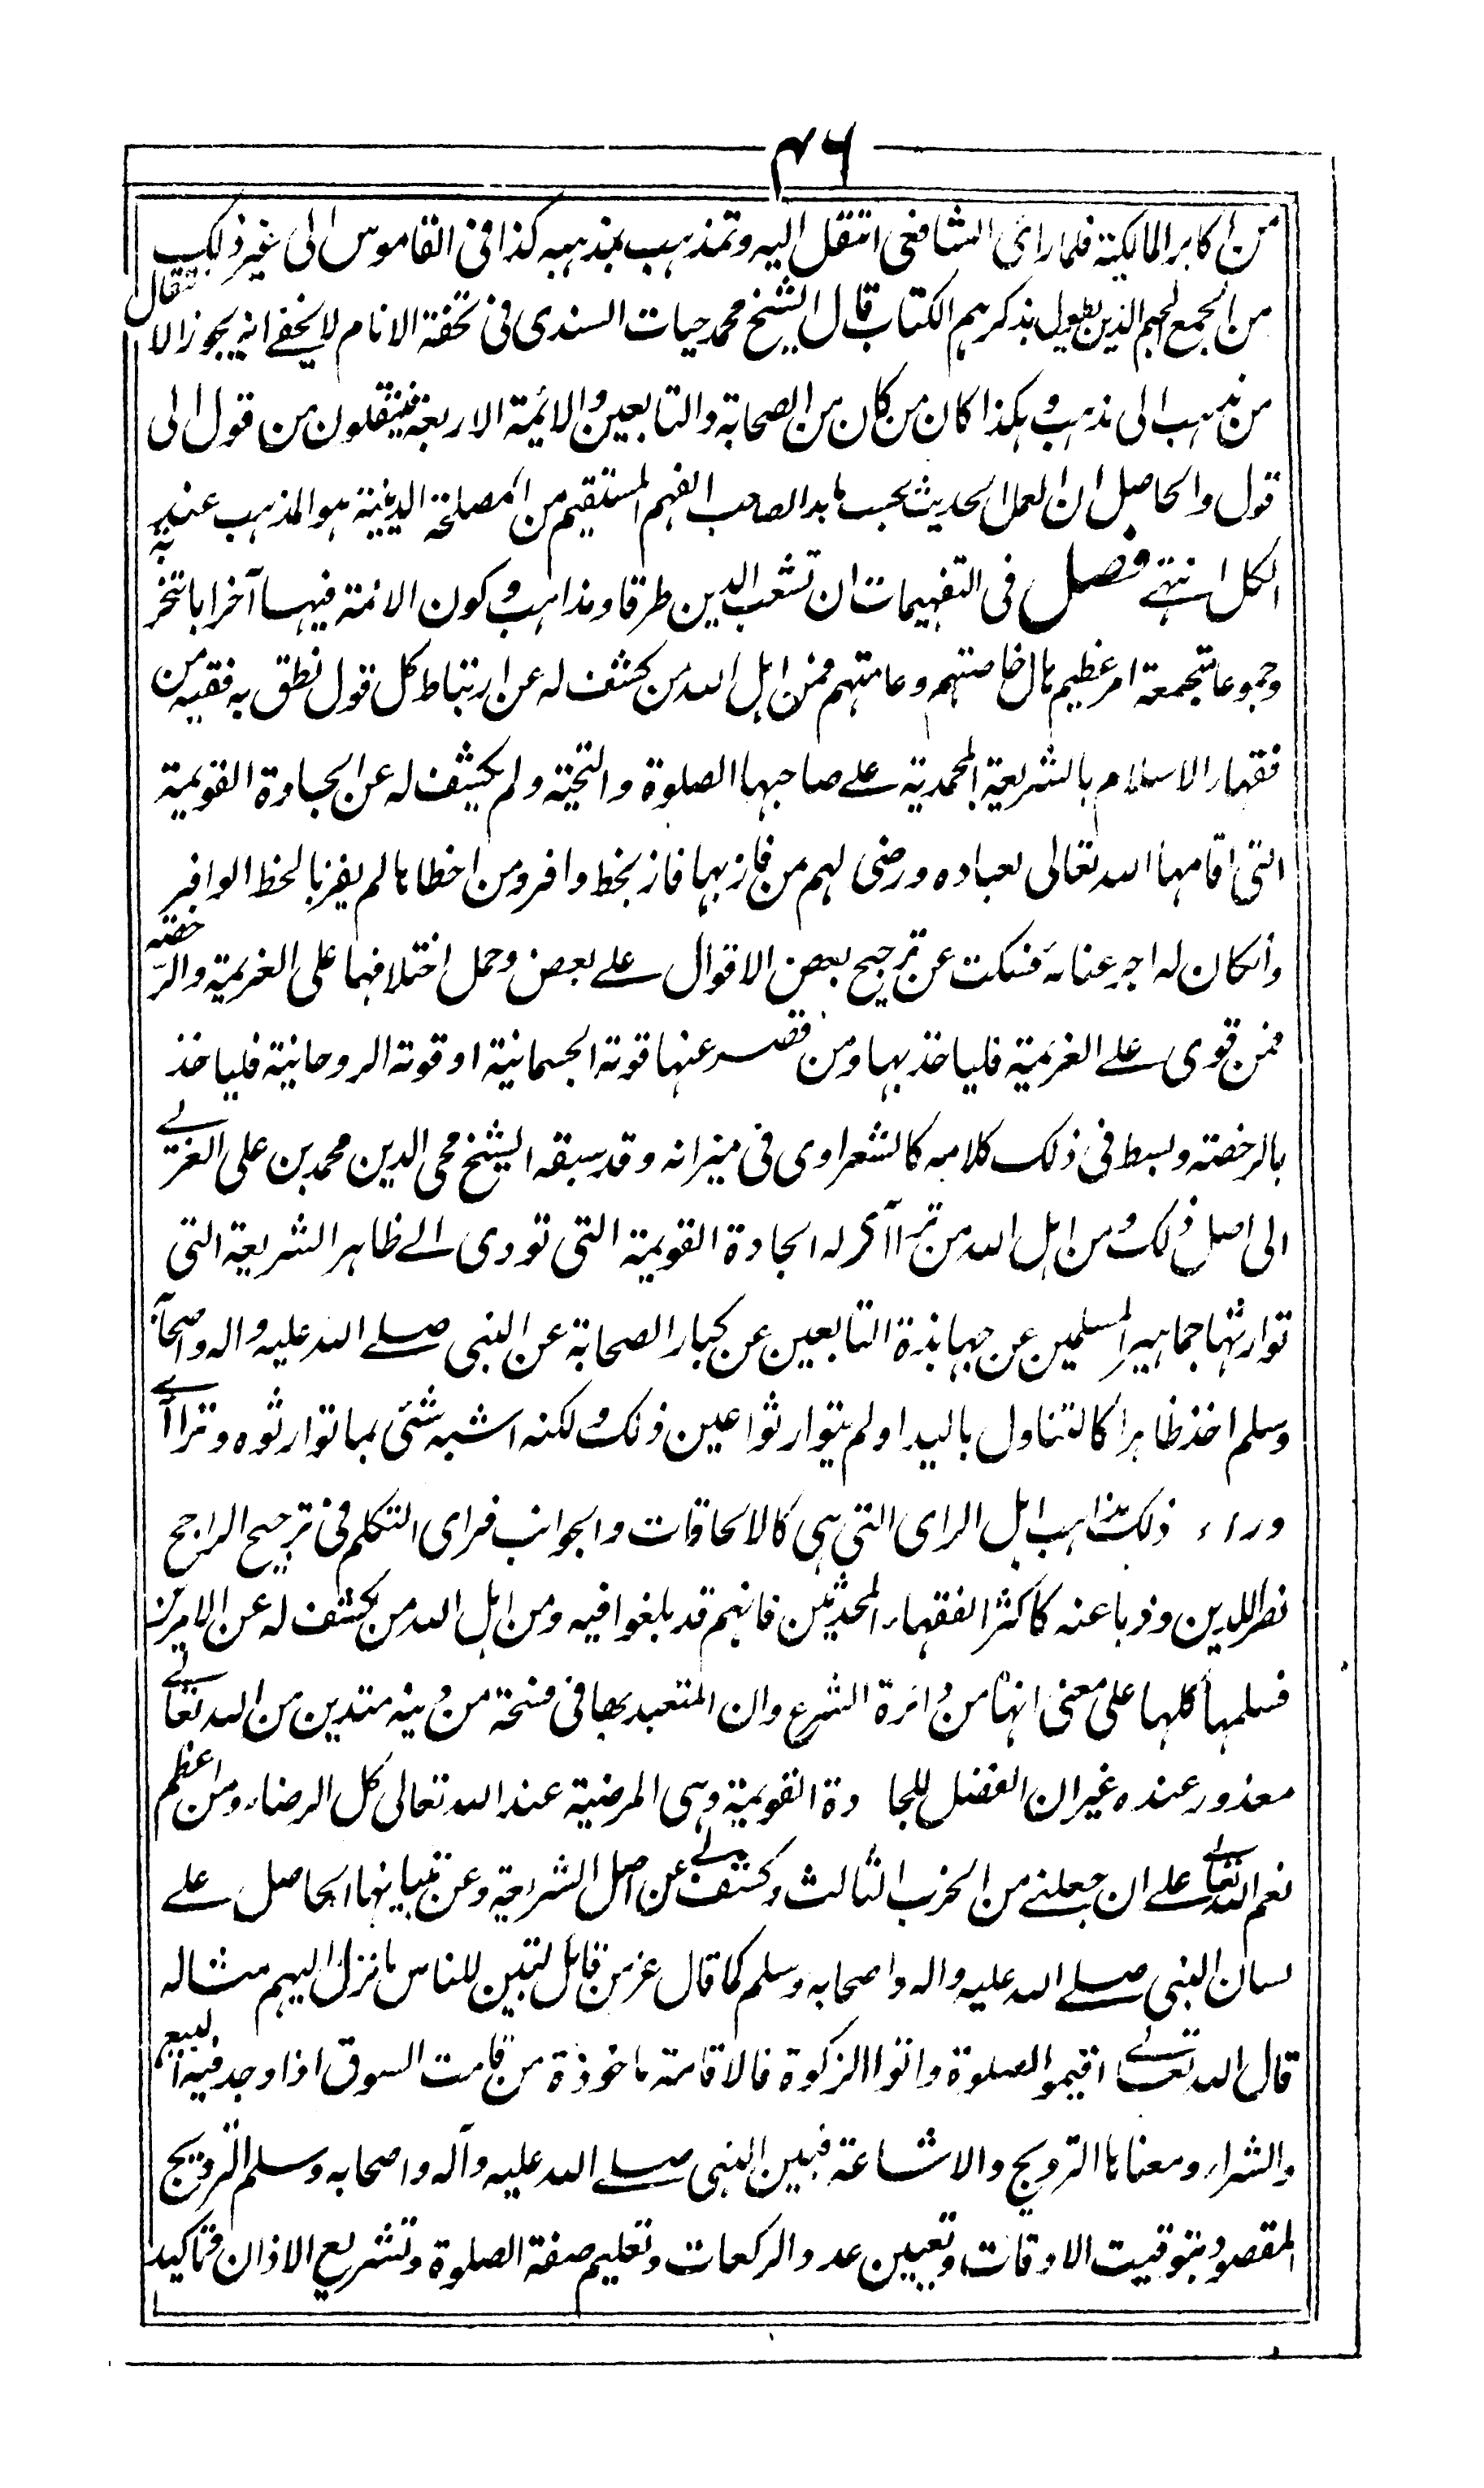 ٣٦
من اكابر المالكية فلما رائ الشافعى انتقل اليه وتمذهب بمذهبه كذا فى القاموس الى غير ذلك
من الجمع الجم الذين يطول بذكرهم الكتاب قال الشيخ محمد حيات السندى فى تحفة الانام لا يخفى انه يجوز الانتقال
من مذهب الى مذهب وهكذا كان من كان من الصحابة والتابعين والائمة الاربعة فينتقلون من قول الى
قول والحاصل ان العمل الحديث بحسب ما بدا لصاحب الفهم المستقيم من المصلحة الدينية هو المذهب عند
الكل انتهى فصل فى التفهيمات ان تشعب الدين طرقا ومذاهب وكون الائمة فيها آخرا باتحزبة
وجموعا متجمعة امر عظيم هال خاصتهم وعامتهم فمن اهل الله من كشف له عن ارتباط كل قول نطق به فقيه من
فقهاء الاسلام بالشريعة المحمدية على صاحبها الصلوة والتحية ولم يكشف له عن الجادة القويمة
التى اقامها الله تعالى لعباده ورضى لهم من فاز بها فاز بحظ وافر ومن اخطاها لم يفز بالحظ الوافر
وانكان له اجر عنائه فسكت عن ترجيح بعض الاقوال على بعض وحمل اختلافها على العزيمة والرخصة
فمن قوى على العزيمة فلياخذ بها ومن قصر عنها قوته الجسمانية او قوته الروحانية فلياخذ
بالرخصة وبسط فى ذلك كلامه كالشعراوى فى ميزانه وقد سبقه الشيخ محى الدين محمد بن على العربى
الى اصل ذلك ومن اهل الله من تراآى له الجادة القويمة التى تودى الى ظاهر الشريعة التى
توارثها جماهير المسلمين عن جهابذة التابعين عن كبار الصحابة عن النبى صلى الله عليه واله واصحابه
وسلم اخذ ظاهرا كالتناول باليد او لم يتوارثوا عين ذلك ولكنه اشبه شئى بما توارثوه وتراآى
وراء ذلك مذاهب اهل الراى التى هى كالالحاقات والجوانب فراى التكلم فى ترجيح الراجح
نصرا للدين وذبا عنه كاكثر الفقهاء المحدثين فانهم قد بلغوا فيه ومن اهل الله من يكشف له عن الامرين
فسلمها كلها على معنى انها من دائرة الشرع وان المتعبد بها فى فسحة من دينه متدين من الله تعالى
معذور عنده غير ان الفضل للجادة القويمة وهى المرضية عند الله تعالى كل الرضاء ومن اعظم
نعم الله تعالى على ان جعلنى من الحزب الثالث وكشف لى عن اصل الشريعة وعن تبيانها الحاصل على
لسان النبى صلى الله عليه واله واصحابه وسلم كما قال عز من قائل لتبين للناس ما نزل اليهم مثاله
قال الله تعالى اقيموا الصلوة واتوا الزكوة فالاقامة ماخوذة من قامت السوق اذا وجد فيه البيع
والشراء ومعناها الترويج والاشاعة فبين النبى صلى الله عليه وآله واصحابه وسلم الترويج
المقصود بتوقيت الاوقات وتعيين عدد الركعات وتعليم صفة الصلوة وتشريع الاذان وتاكيد